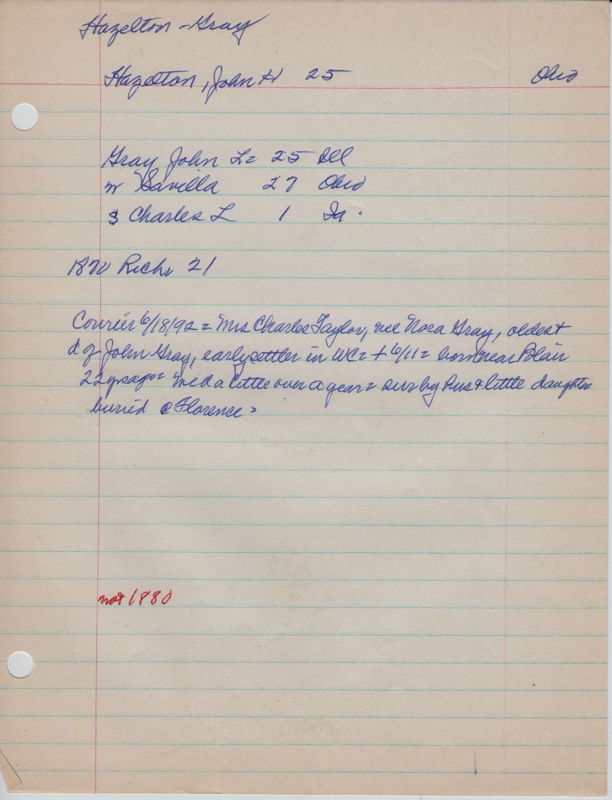 Hazelton - Gray
Hazelton, John H 25 Ohio
Gray John L = 25 Ill
w Savilla 27 Ohio
s Charles L 1 Ia.
1870 Rich 21
Courier 6/18/92 = Mrs Charles Taylor, nee Nora Gray, oldest
d of John Gray, early settler in WC = + 6/11 = born near Blair
22 y ago = m'ed a little over a year = sur by hus + little daughter
buried @ Florence =
not 1880